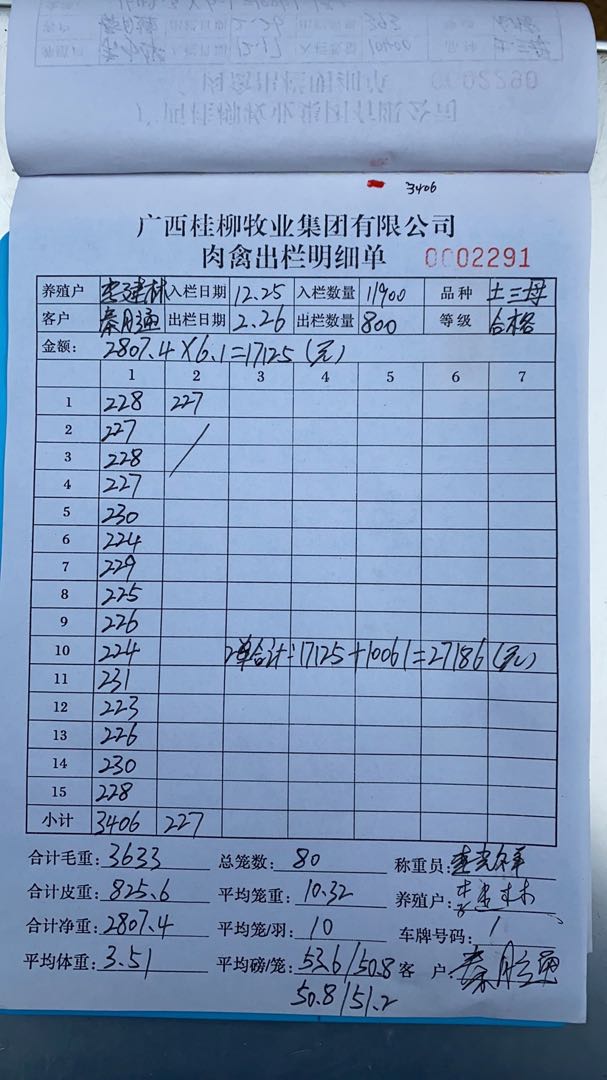 0002290
3406
广西桂柳牧业集团有限公司
肉禽出栏明细单 0002291
养殖户 李建林 入栏日期 12.25 入栏数量 11900 品种 土三母
客户 秦胜通 出栏日期 2.26 出栏数量 800 等级 合格
金额: 2807.4×6.1=17125(元)
1 2 3 4 5 6 7
1 228 227
2 227
3 228
4 227
5 230
6 224
7 229
8 225
9 226
10 224 2单合计:17125+10061=27186(元)
11 231
12 223
13 226
14 230
15 228
小计 3406 227
合计毛重: 3633 总笼数: 80 称重员:
合计皮重: 825.6 平均笼重: 10.32 养殖户: 李建林
合计净重: 2807.4 平均笼/羽: 10 车牌号码: /
平均体重: 3.51 平均磅/笼: 53.6/50.8 客 户: 秦胜通
50.8/51.2